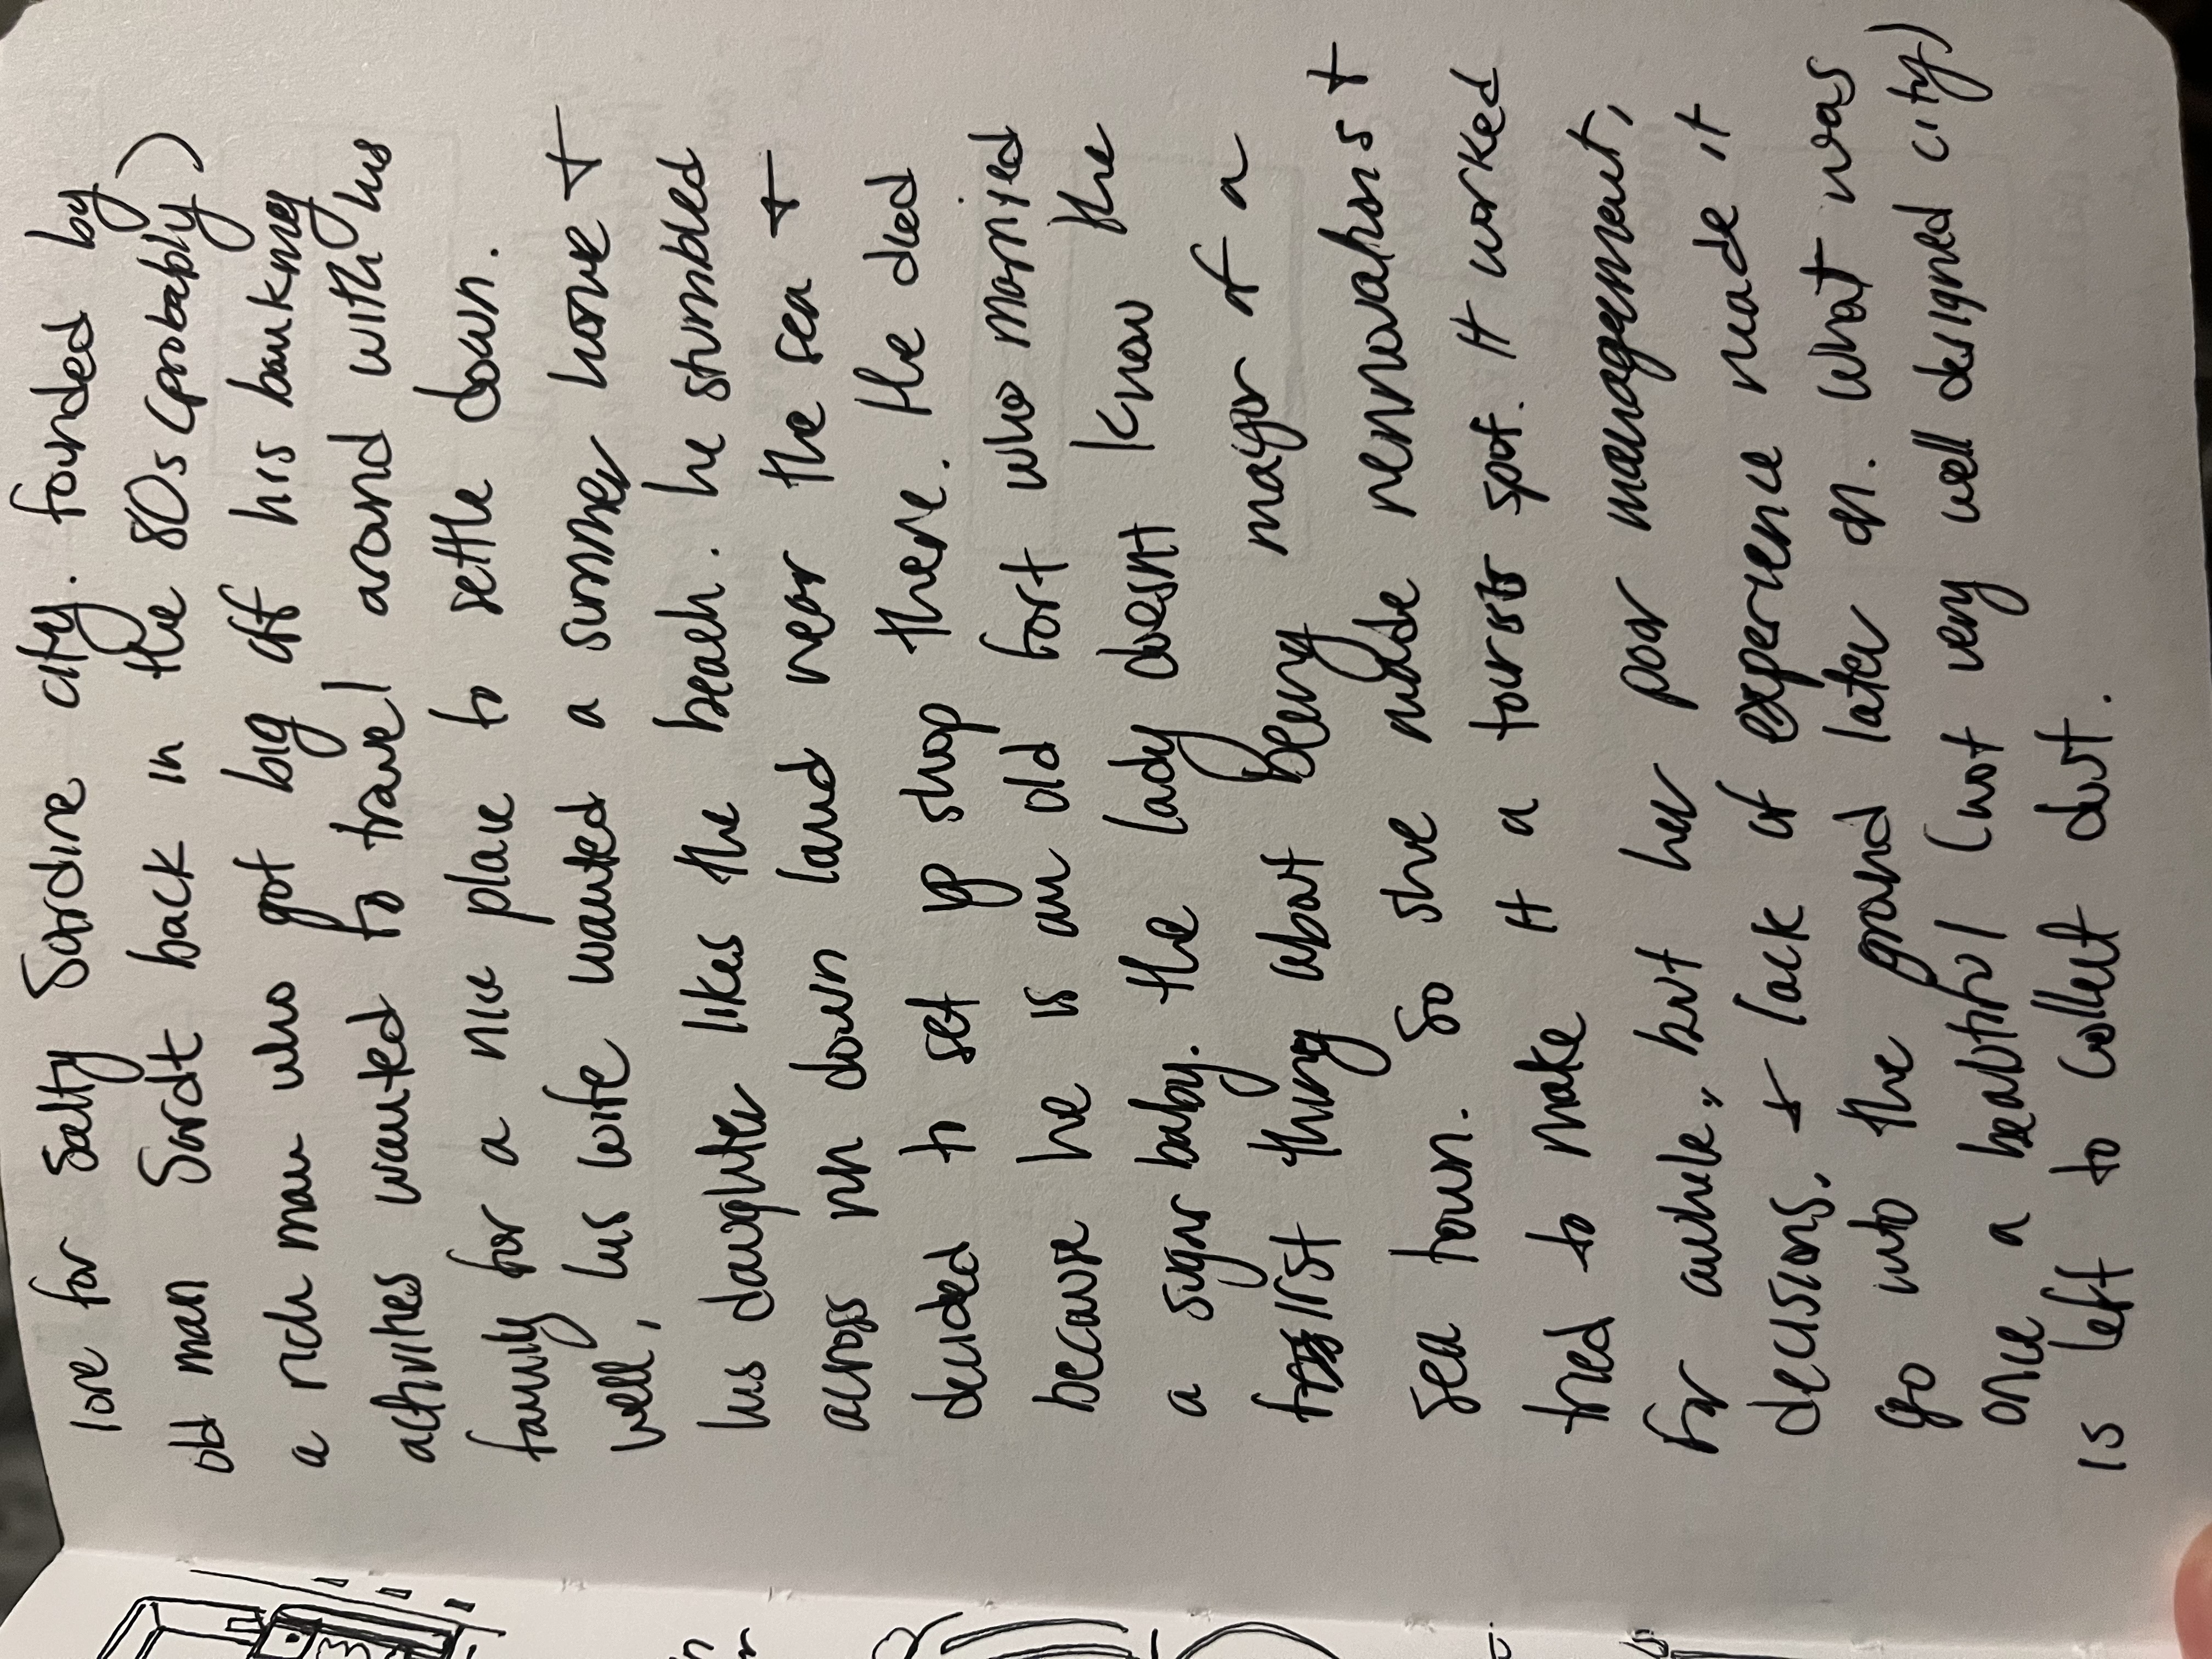 lore for Salty Sardine city. founded by
old man Sardt back in the 80s (probably)
a rich man who got big off his banking
activities wanted to travel around with his
family for a nice place to settle down.
well, his wife wanted a summer home +
his daughter likes the beach. he stumbled
across run down land near the sea +
decided to set up shop there. He died
because he is an old fart who married
a sugar baby. the lady doesnt know the
first thing about being mayor of a
sea town. So she made rennovations +
tried to make it a tourist spot. It worked
for awhile, but her poor management,
decisions, + lack of experience made it
go into the ground later on. What was
once a beautiful (not very well designed city)
is left to collect dust.